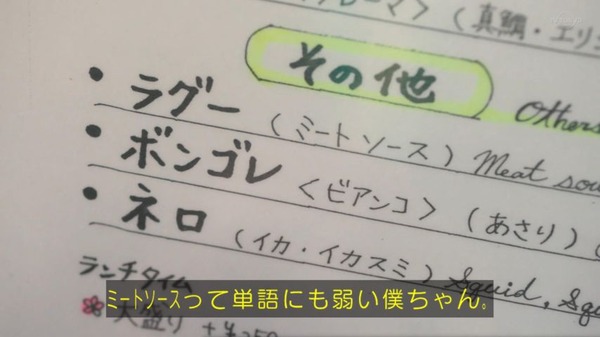 (真鯛・エリン
その他 Others
• ラグー (ミートソース) Meat sou
• ボンゴレ <ビアンコ> (あさり)
• ネロ (イカ・イカスミ) Squid, Squ
ランチタイム
大盛り
ﾐｰﾄｿｰｽって単語にも弱い僕ちゃん。